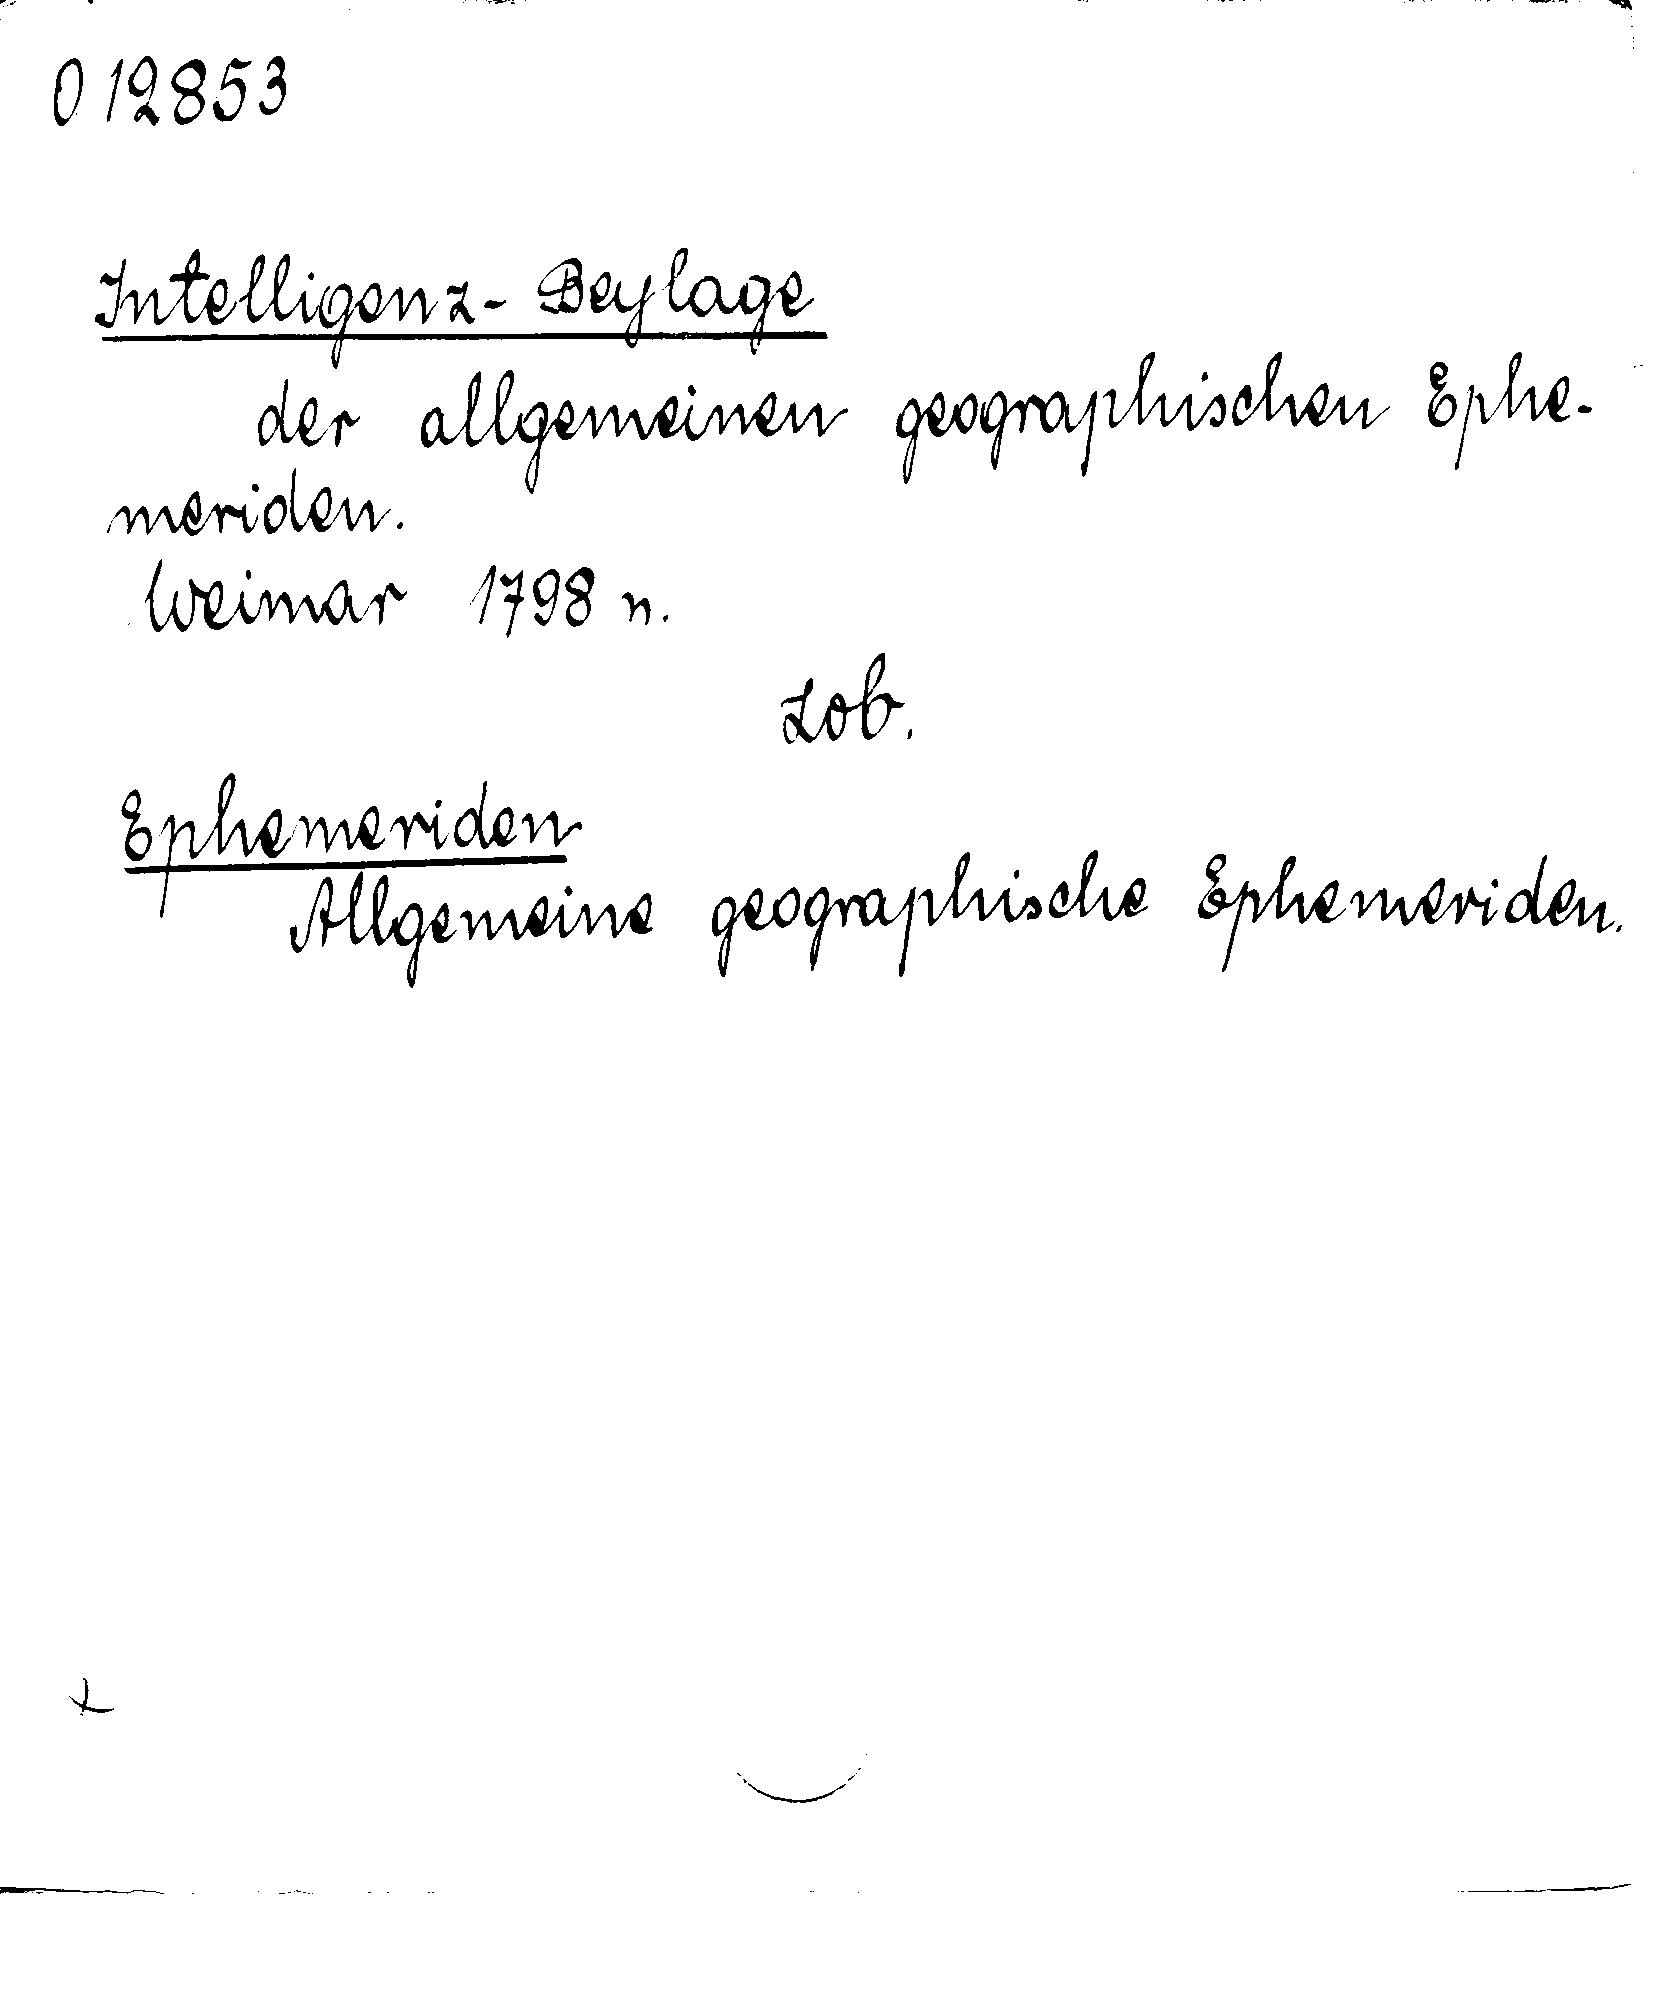 012853
Intelligenz-Beylage
der allgemeinen geographischen Ephe-
meriden.
Weimar 1798 n.
Zob.
Ephemeriden
Allgemeine geographische Ephemeriden.